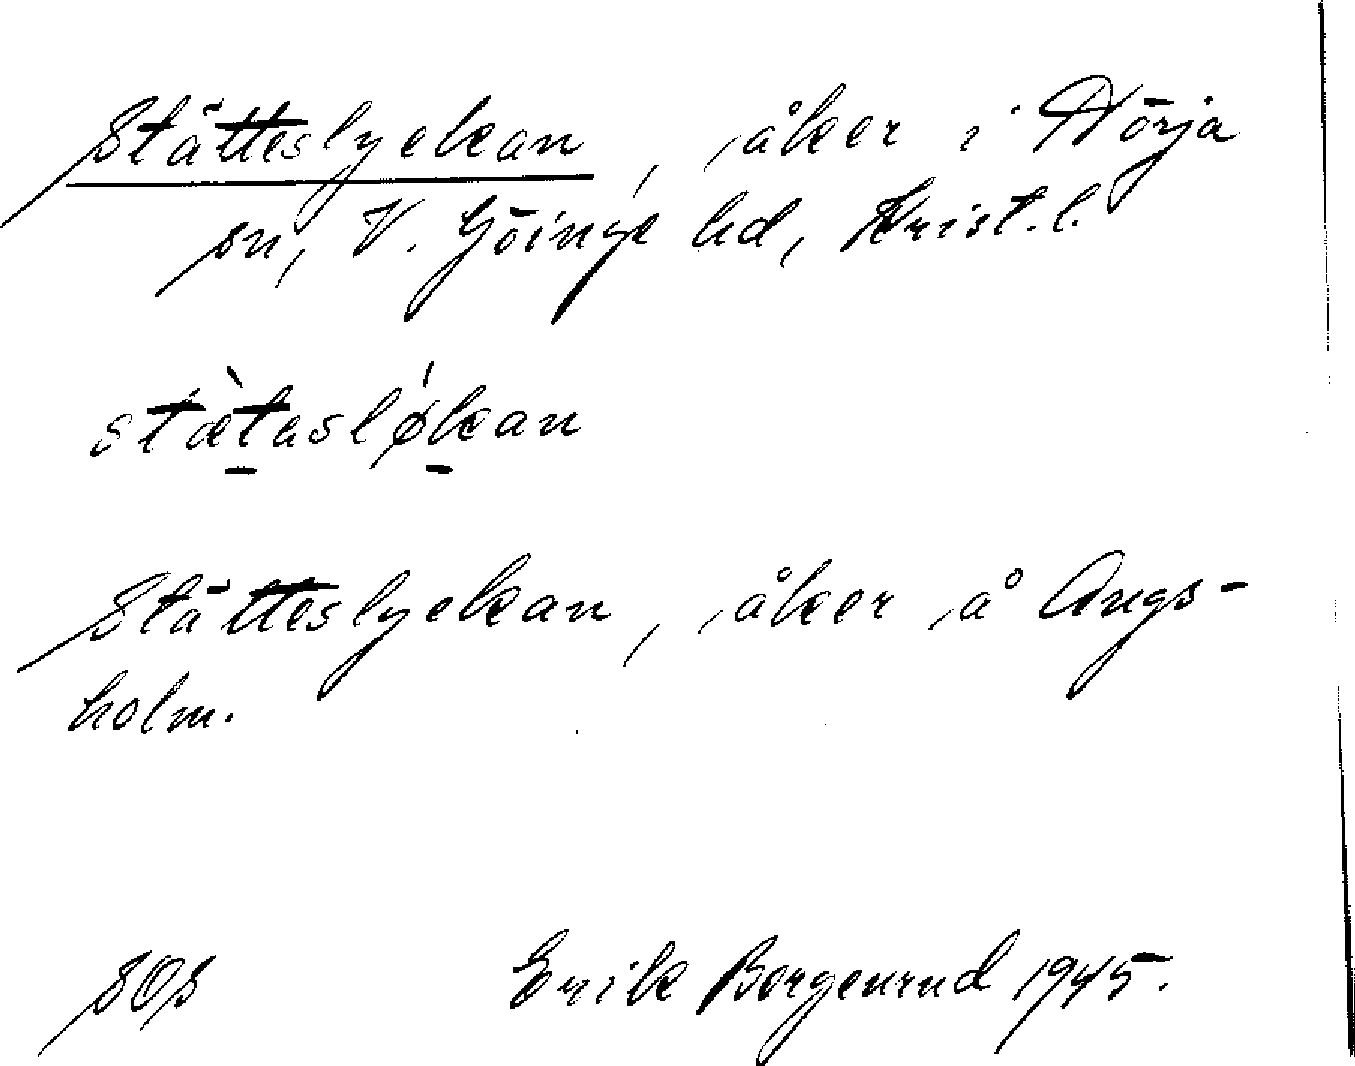 Stätteslyckan, åker i Hörja
sn, V. Göinge hd, Krist. l.
stæ̀tasløkan
Stätteslyckan, åker å Ängs-
holm.
SOS Erik Borgenrud 1945.